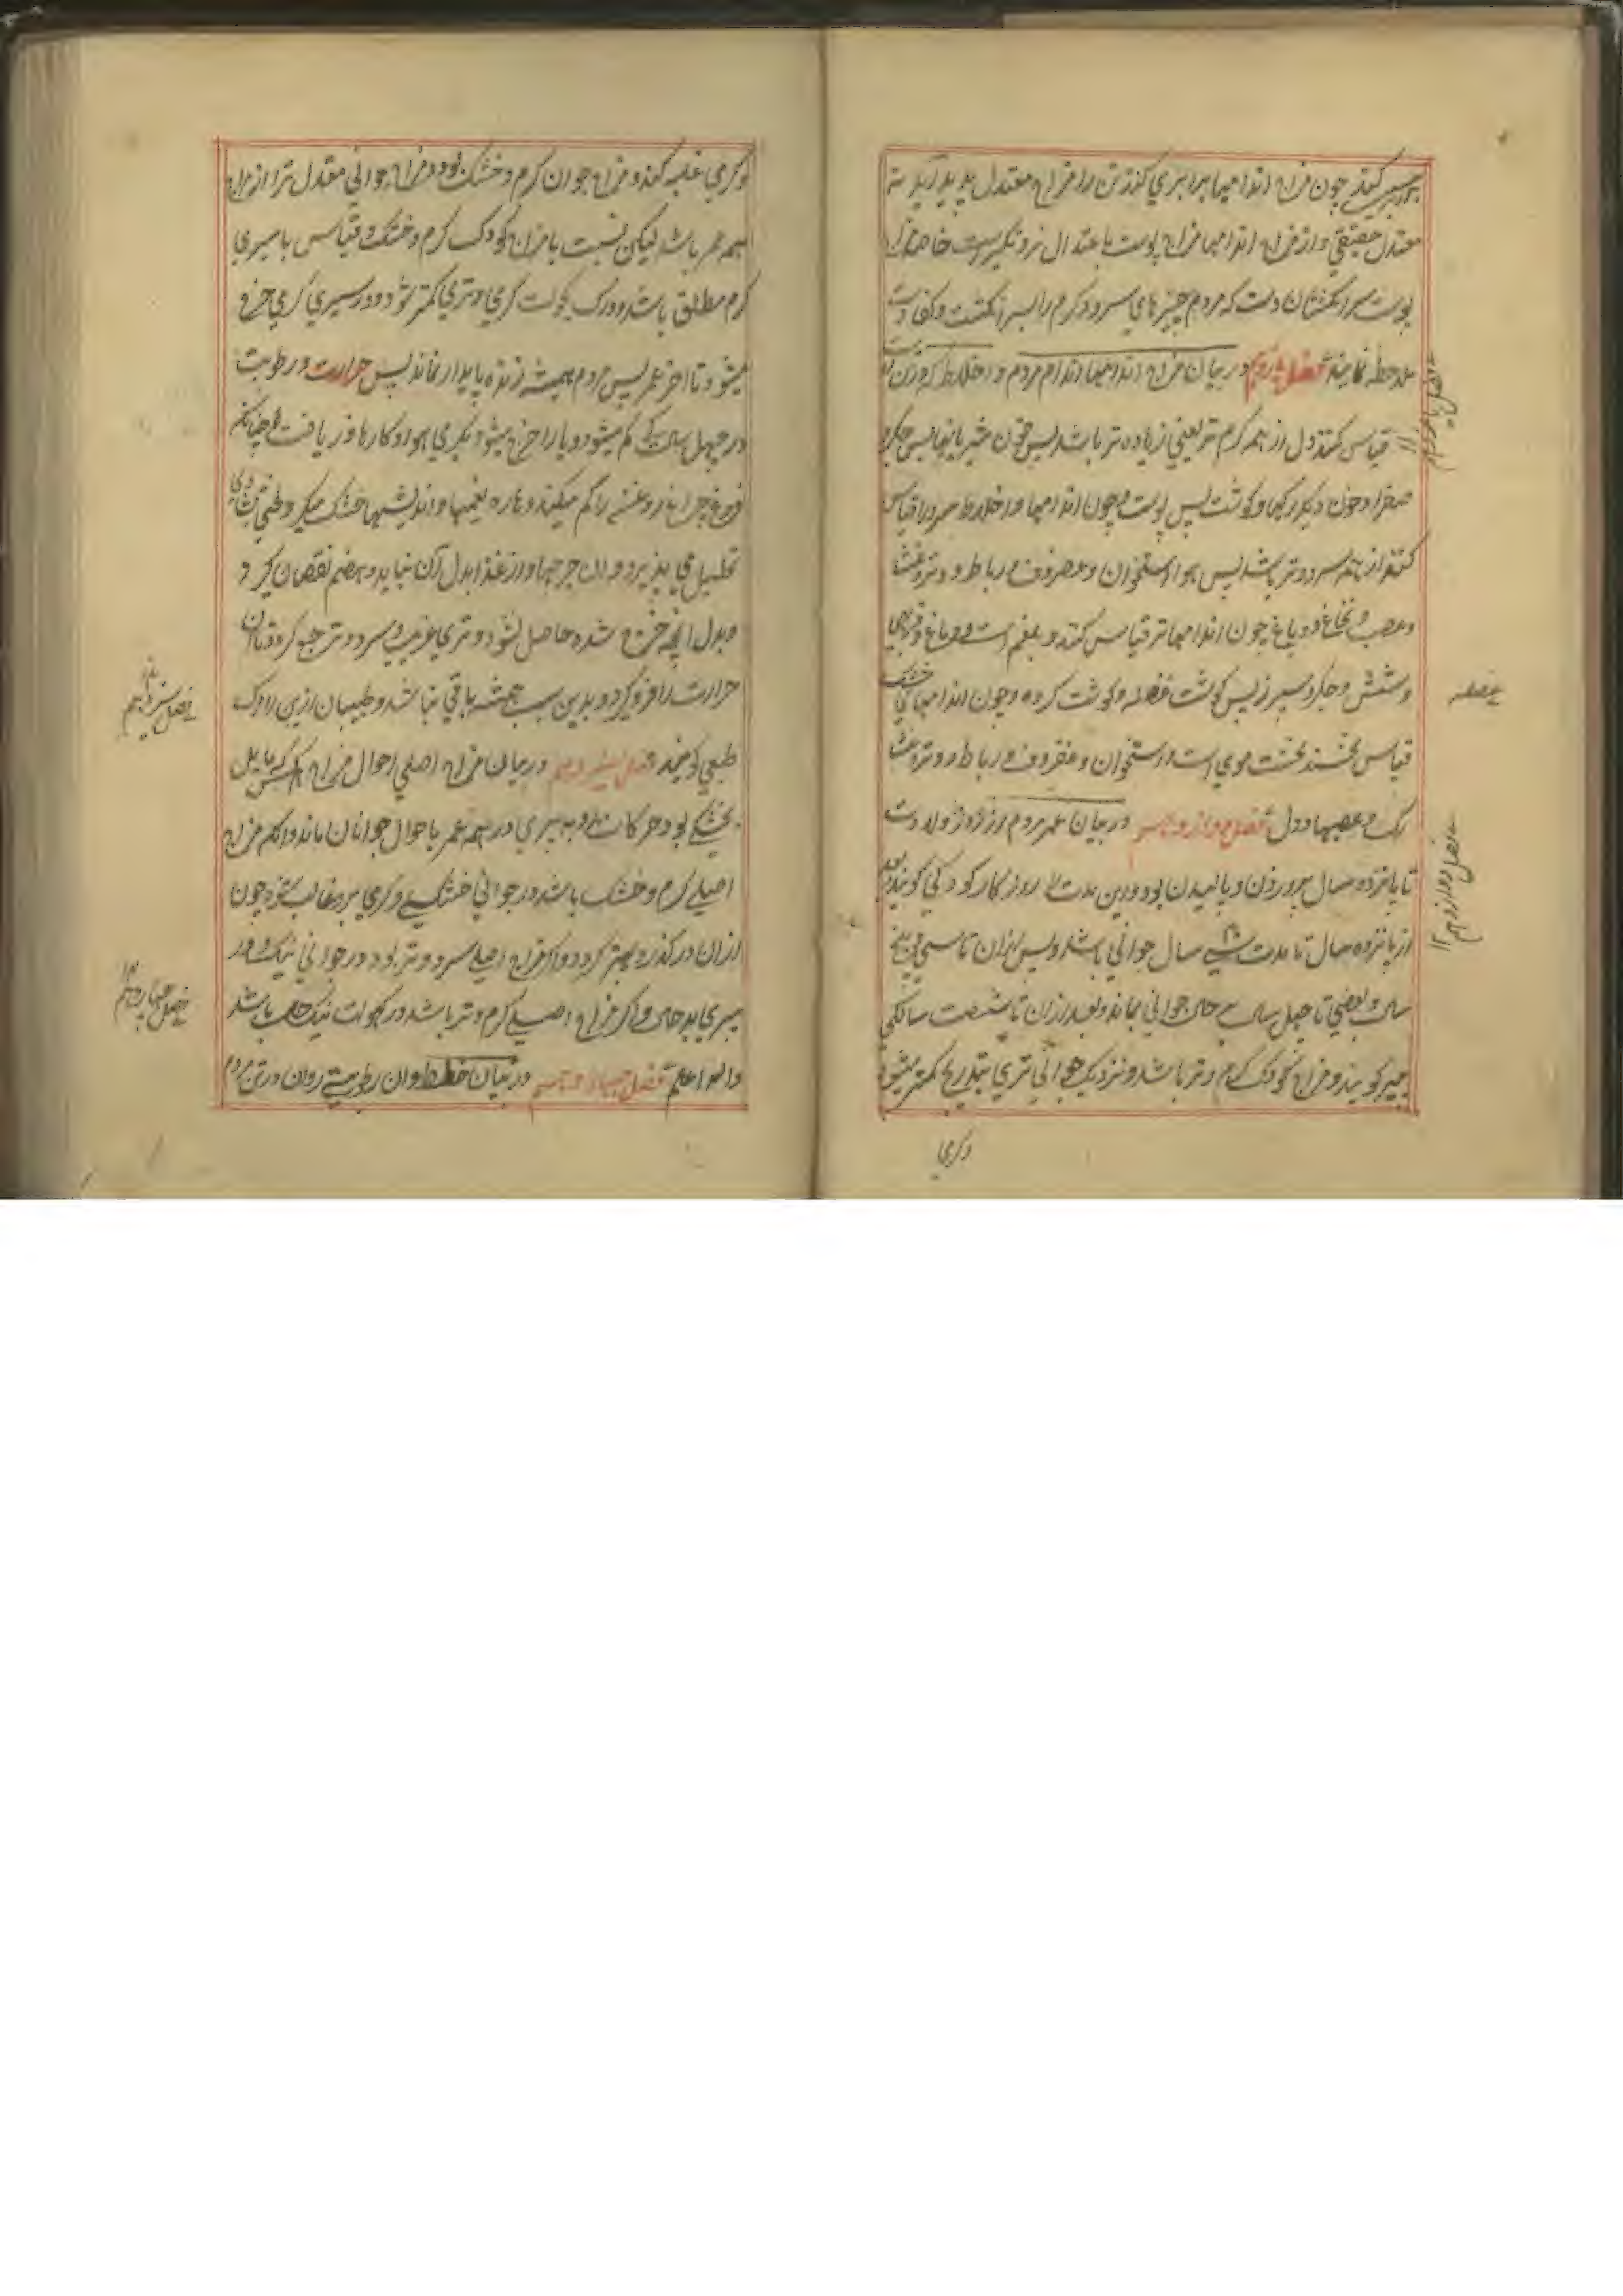 کنند چون مزاج اندامها برابری کنند تن را مزاج معتدل پدید آید نه
معتدل حقیقی و از مزاج اندامها مزاج پوست باعتدال نزدیکتر است خاصه
پوست سر انکشتان دست که مردم چیزهای سرد و کرم را بسر انکشت
ملاحظه نمایند فصل یازدهم در بیان مزاج اندامها اندام مردم و اخلاط که در تن
قیاس کنند دل از همه کرم تر یعنی زیاده تر باشد پس خون پس جکر
صفرا و خون دیکر رکها و کوشت پس پوست و چون اندامها و اخلاط سرد را قیاس
کنند از همه سردتر باشد پس مو و استخوان و غضروف و رباط و وتر و غشا
و عصب و نخاع و دماغ چون اندامها تر قیاس کنند و بلغم است و دماغ و
و شش و جکر و سپرز پس کوشت عضله و کوشت کرده و چون اندامهای خشک
قیاس کنند نخست موی است و استخوان و غضروف و رباط و وتر و غشا
رک و عصبها و دل فصل دوازدهم در بیان عمر مردم از روز ولادت
تا پانزده سال پروردن و بالیدن بود و درین مدت را روزکار کودکی کویند بعد
از پانزده سال تا مدت سی سال جوانی باشد و پس ازان تا سی و پنج
سال و بعضی تا چهل سال بر حال جوانی بماند و بعد ازان تا شصت سالکی
پیر کویند و مزاج کودک کرم و تر باشد و نزدیک جوانی تری بتدریج کمتر میشود
وکرمی
فصل یازدهم
عضله
فصل دوازدهم ۱۲
و کرمی غلبه کند و مزاج جوان کرم و خشک بود و مزاج جوانی معتدل تر از مزاج
همه عمر باشد لیکن نسبت با مزاج کودک کرم و خشک و قیاس با پیری
کرم مطلق باشد و در کهولت کرمی و تری کمتر شود و در پیری کرمی خرج
میشود تا آخر عمر پس مردم همیشه زنده پایدار نماند پس حرارت و رطوبت
در چهل سالکی کم میشود و یا را خرج میشود بکرمی هوا و کارها و ریاضت و چنانکه
فروغ چراغ روغن را کم میکند و هاره بغمها و اندیشها خشک میکند و
تحلیل می پذیرد و ان خرجها و از غذا بدل آن نیابد و هضم نقصان کیرد
و بدل آنچه خرج شده حاصل نشود و تری غریب و سرد و تر جمع کردد تا آن
حرارت را فرو کیرد و بدین سبب همیشه باقی نباشد و طبیبان ازین را مرک
طبعی کویند فصل سیزدهم در بیان مزاج اصلی احوال مزاج هر کس که مایل
بخشکی بود حرکات او به پیری در همه عمر با حال جوانان ماند و اکر مزاج
اصلی کرم و خشک باشد در جوانی خشکی و کرمی برو غالب شود چون
ازان در کذرد بهتر کردد و اکر مزاج اصلی سرد و تر بود در جوانی نیک و در
پیری بد حال و اکر مزاج اصلی کرم و تر باشد در کهولت نیک حال باشد
والله اعلم فصل چهاردهم در بیان خلط و ان رطوبتی روان در تن مردم
فصل سیزدهم
فصل چهاردهم